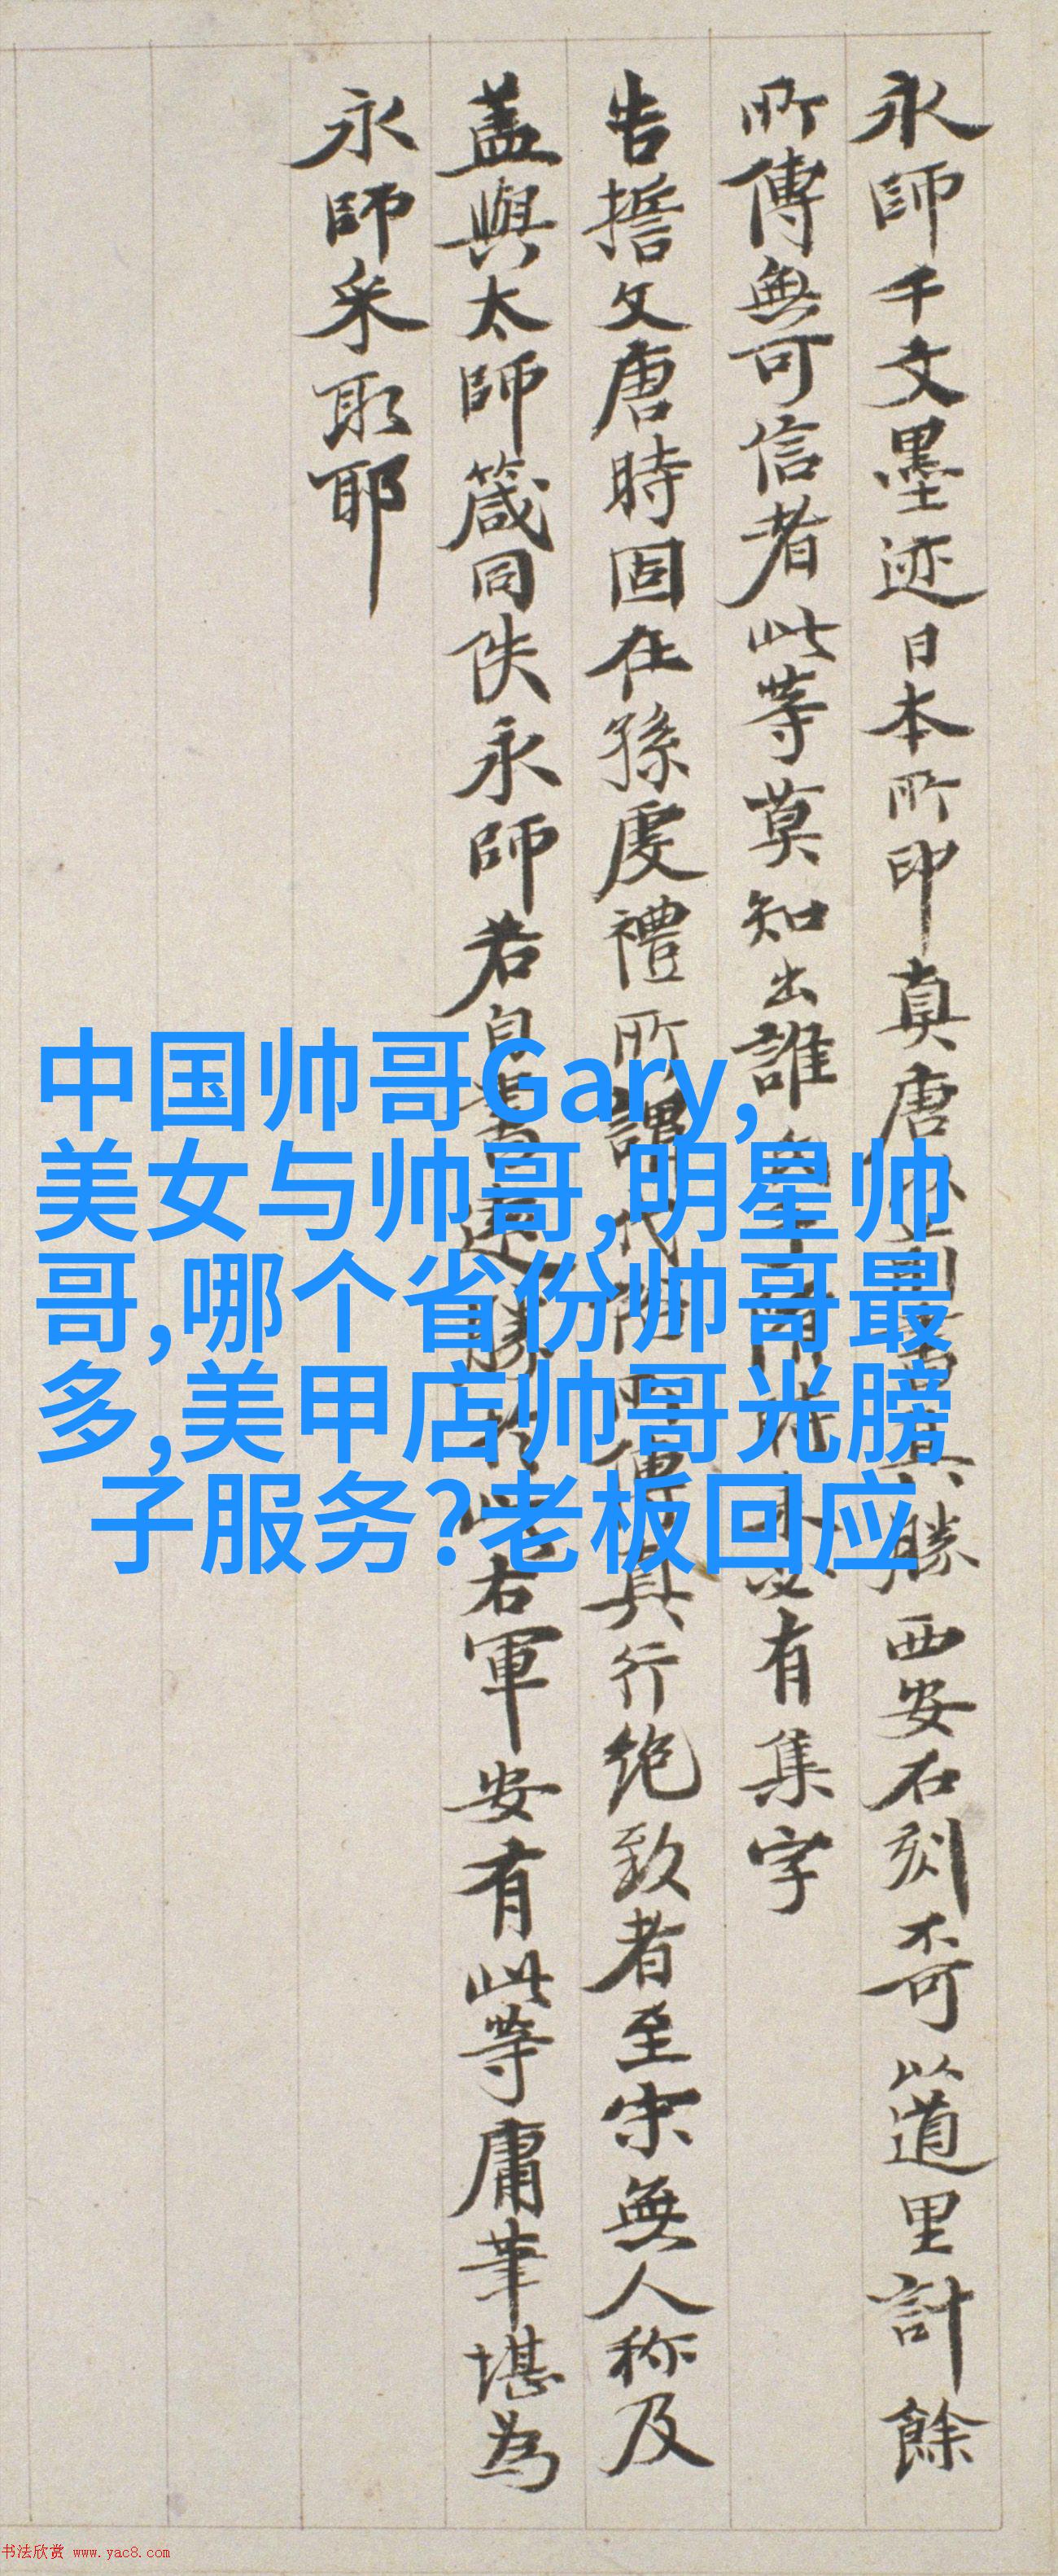 永師千文墨迹日本所印真唐
勝西安石刻奇以道里計餘
所傳無可信者此等莫知出誰
有集字
告擔文唐時固在孫虔禮所謂
真行絶致者至宋無人称及
盖與太師箴同佚永師若自書
右軍安有此等庸筆堪為
永師采取耶
中国帅哥Gary,
美女与帅哥,明星帅
哥,哪个省份帅哥最
多,美甲店帅哥光膀
子服务?老板回应
书法欣赏 www.yac8.com